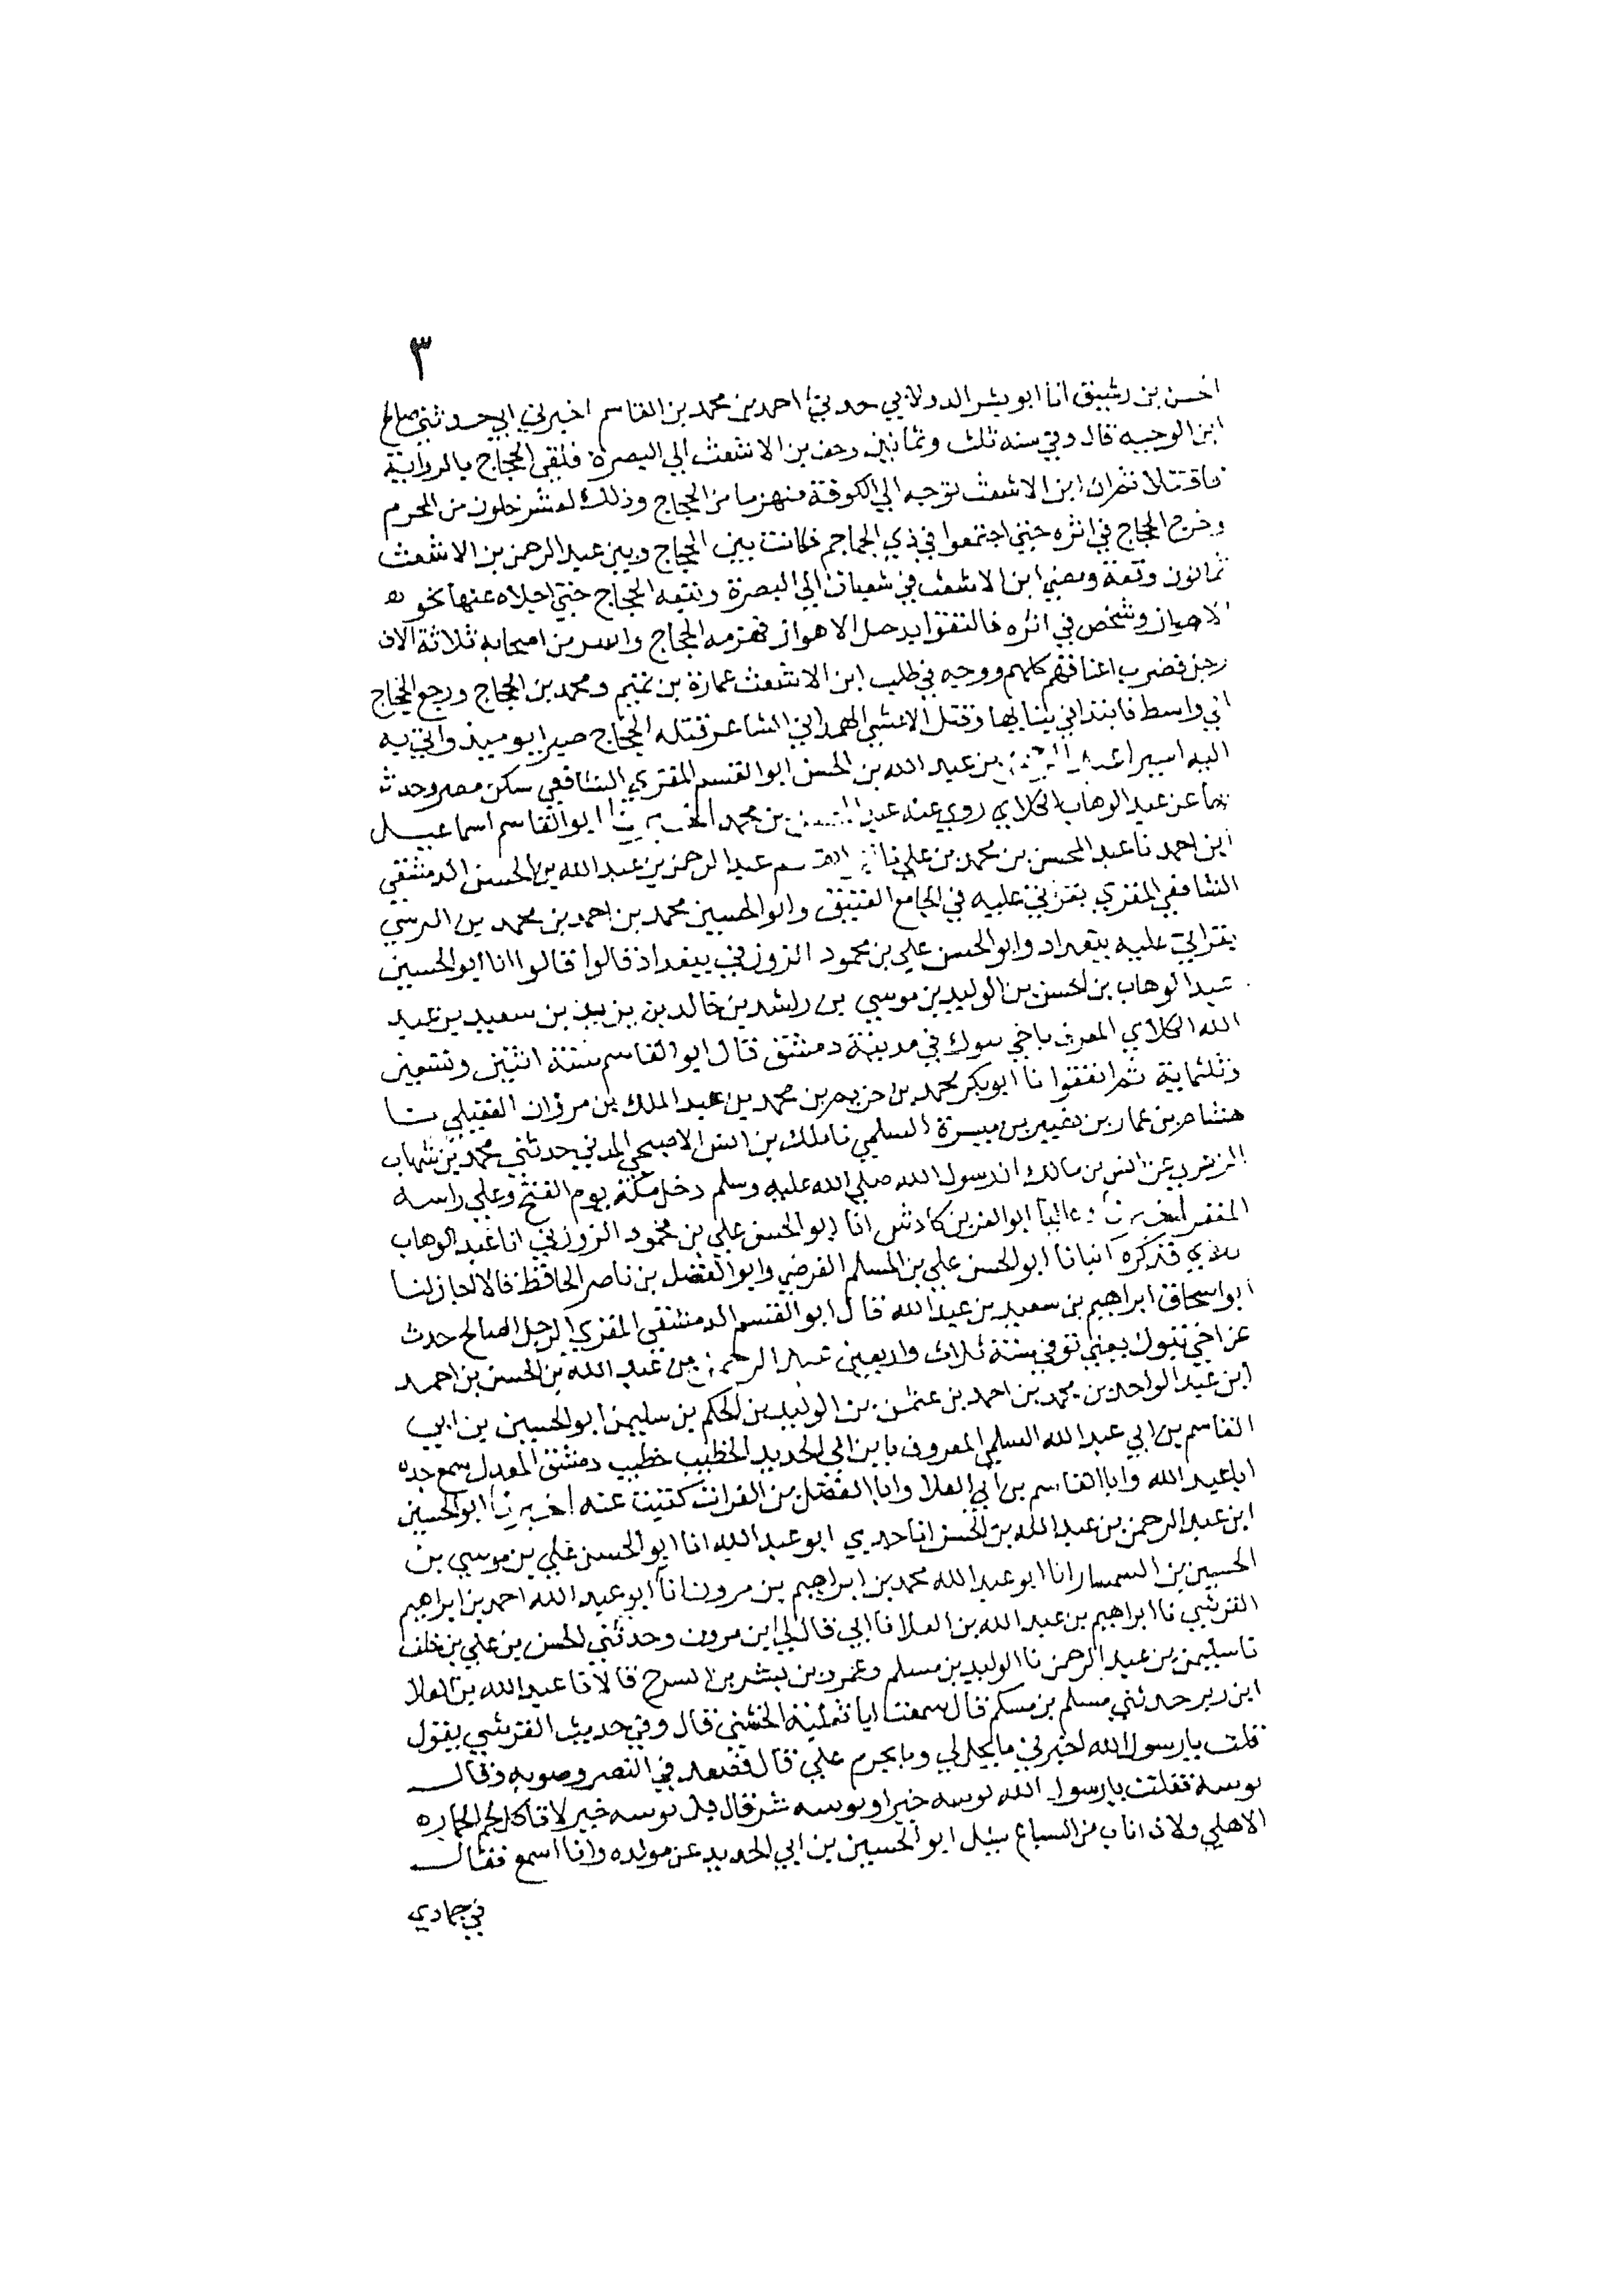 ٣
الحسن بن رشيق انا ابو بشر الدولابي حدثني احمد بن محمد بن القاسم اخبرني ابي حدثني صالح
ابن الوجيه قال وفي سنه ثلث وثمانين زحف بن الاشعث الي البصرة فلقي الحجاج بالزوايية
فاقتتلا ثم ان ابن الاشعث توجه الي الكوفة منهزما من الحجاج وذلك لعشر خلون من المحرم
وخرج الحجاج في اثره حتي اجتمعوا في ذي الجماجم فكانت بين الحجاج وبين عبد الرحمن بن الاشعث
ثمانون وقعة ومضي ابن الاشعث في شعبان الي البصرة وتتبعه الحجاج حتي اجلاه عنها نحو
الاهواز وشخص في اثره فالتقوا بدجيل الاهواز فهزمه الحجاج واسر من اصحابه ثلاثة الاف
رجل فضرب اعناقهم كلهم ووجه في طلب ابن الاشعث عمارة بن تميم ومحمد بن الحجاج ورجع الحجاج
الي واسط فابتدا في بنايها وقتل الاعشي الهمداني الشاعر قتله الحجاج صبرا يوميذ واتي به
اليه اسيرا عبد الرحمن بن عبد الله بن الحسن ابو القسم المقري الشافعي سكن مصر وحدث
بها عن عبد الوهاب الكلابي روي عنه عبد المحسن بن محمد اخبرنا ابو القاسم اسماعيل
ابن احمد نا عبد المحسن بن محمد بن علي نا ابو القاسم عبد الرحمن بن عبد الله بن الحسن الدمشقي
الشافعي المقري بقراتي عليه في الجامع العتيق وابو الحسين محمد بن احمد بن محمد بن النرسي
بقراتي عليه ببغداد وابو الحسن علي بن محمود الزوزني ببغداد قالوا قالوا انا ابو الحسين
عبد الوهاب بن الحسن بن الوليد بن موسي بن راشد بن خالد بن يزيد بن سعيد بن عبد
الله الكلابي المعرف باخي تبوك في مدينة دمشق قال ابو القاسم سنة اثنين وتسعين
وثلثماية ثم اتفقوا نا ابو بكر محمد بن خريم بن محمد بن عبد الملك بن مروان العقيلي نا
هشام بن عمار بن نصير بن ميسرة السلمي نا ملك بن انس الاصبحي المدني حدثني محمد بن شهاب
الزهري عن انس بن مالك ان رسول الله صلي الله عليه وسلم دخل مكة يوم الفتح وعلي راسه
المغفر اخبرناه عاليا ابو العز بن كادش انا ابو الحسن علي بن محمود الزوزني انا عبد الوهاب
الكلابي فذكره انبانا ابو الحسن علي بن المسلم الفرضي وابو الفضل بن ناصر الحافظ قالا اجاز لنا
ابو اسحاق ابراهيم بن سعيد بن عبد الله قال ابو القسم الدمشقي المقري الرجل الصالح حدث
عن اخي تبوك يعني توفي سنة ثلاث واربعين عبد الرحمن بن عبد الله بن الحسن بن احمد
ابن عبد الواحد بن محمد بن احمد بن عثمن بن الوليد بن الحكم بن سليمن ابو الحسين بن ابي
القاسم بن ابي عبد الله السلمي المعروف بابن ابي الحديد الخطيب خطيب دمشق المعدل سمع جده
ابا عبد الله وابا القاسم بن ابي العلا وابا الفضل بن الفرات كتبت عنه اخبرنا ابو الحسين
ابن عبد الرحمن بن عبد الله بن الحسن انا جدي ابو عبد الله انا ابو الحسن علي بن موسي بن
الحسين بن السمسار انا ابو عبد الله محمد بن ابراهيم بن مرون انا ابو عبد الله احمد بن ابراهيم
القرشي نا ابراهيم بن عبد الله بن العلا نا ابي قال لي ابن مرون وحدثني الحسن بن علي بن خلف
نا سليمن بن عبد الرحمن نا الوليد بن مسلم وعمرو بن بشر بن السرح قالا نا عبد الله بن العلا
ابن زبر حدثني مسلم بن مسكم قال سمعت ابا ثعلبة الخشني قال وفي حديث القرشي يقول
قلت يا رسول الله اخبرني ما يحل لي وما يحرم علي قال فصعد في النصر وصوبه وقال
نويسه فقلت يا رسول الله نويسه خيرا ونويسه شر قال بل نويسه خير لا تاكل لحم الحماره
الاهلي ولا ذا ناب من السباع سيل ابو الحسين بن ابي الحديد عن مولده وانا اسمع فقال
في جمادي